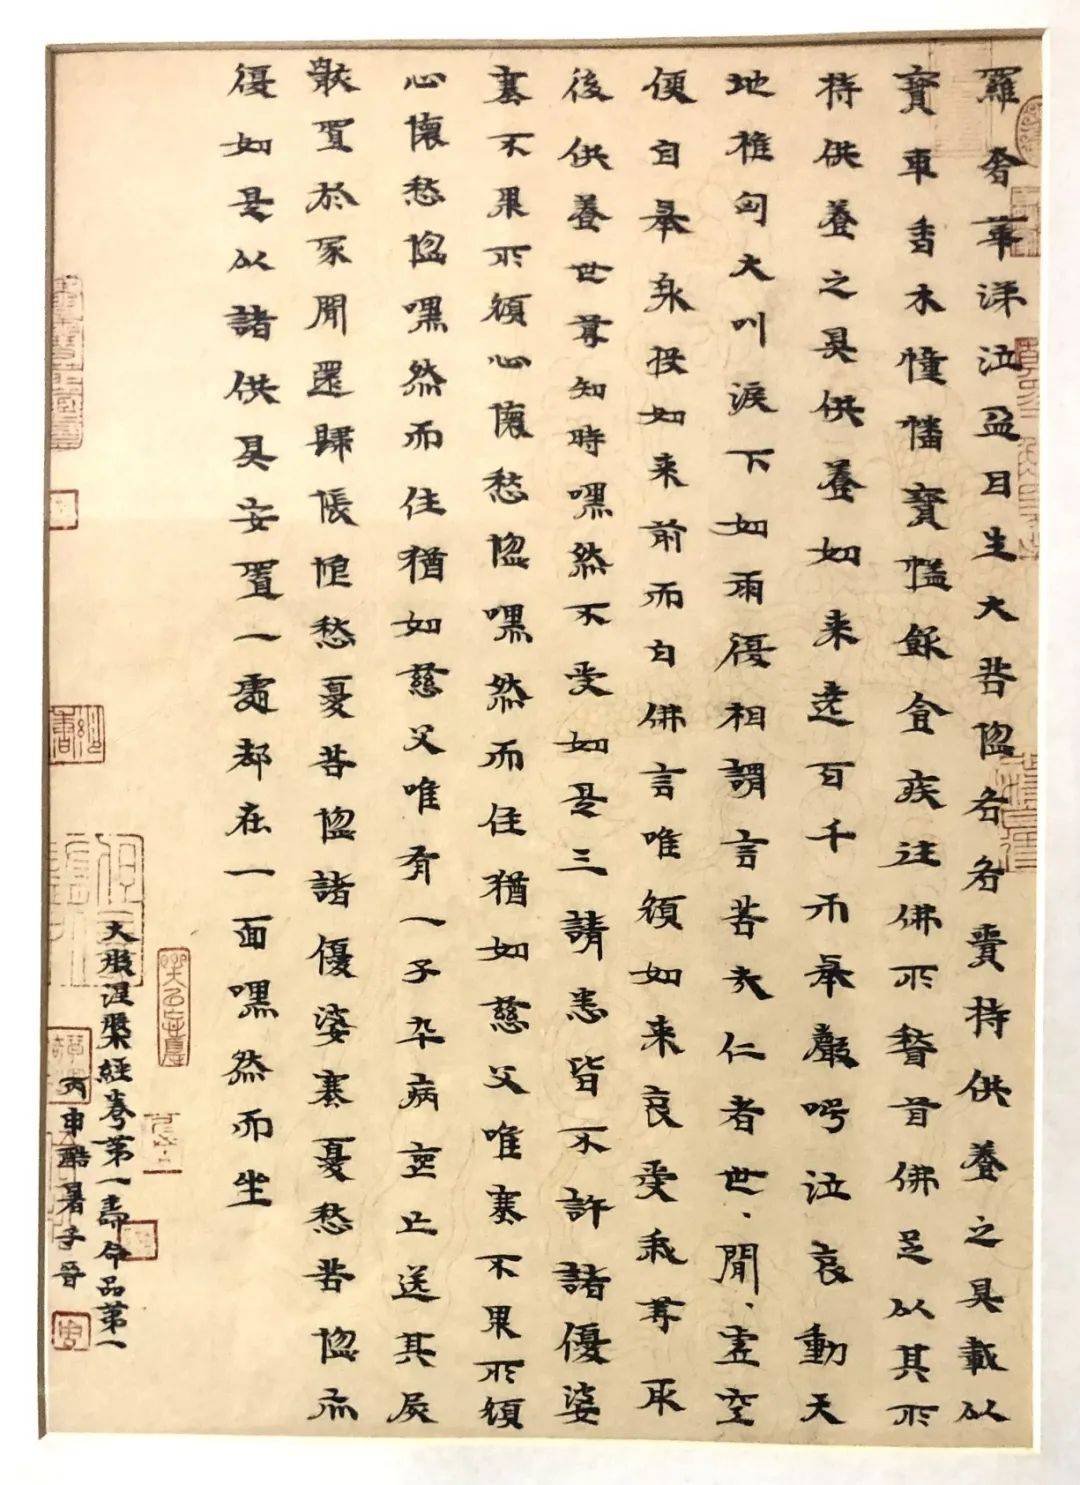 羅奢華涕泣盈目生大苦惱各各賷持供養之具載以
寶車香木幢幡寶蓋飲食疾往佛所稽首佛足以其所
持供養之具供養如來遶百千帀舉聲號泣哀動天
地椎匈大叫淚下如雨復相謂言苦哉仁者世、間、虛空
便自舉身投如來前而白佛言唯願如來哀受我等最
後供養世尊知時嘿然不受如是三請悉皆不許諸優婆
塞不果所願心懷愁惱嘿然而住猶如慈父唯塞不果所願
心懷愁惱嘿然而住猶如慈父唯有一子卒病喪亡送其屍
骸置於冢間還歸悵怏愁憂苦惱諸優婆塞憂愁苦惱亦
復如是以諸供具安置一處却在一面嘿然而坐
大般涅槃經卷第一壽命品第一
丙申酷暑子晉